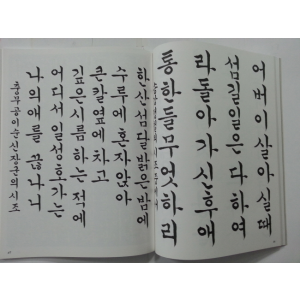 어버이살아실때
섬길일은다하여
라돌아가신후애
통한들무엇하리
한산섬달밝은밤에
수루에혼자앉아
큰칼옆에차고
깊은시름하는적에
어디서일성호가는
나의애를끊나니
충무공이순신장군의시조